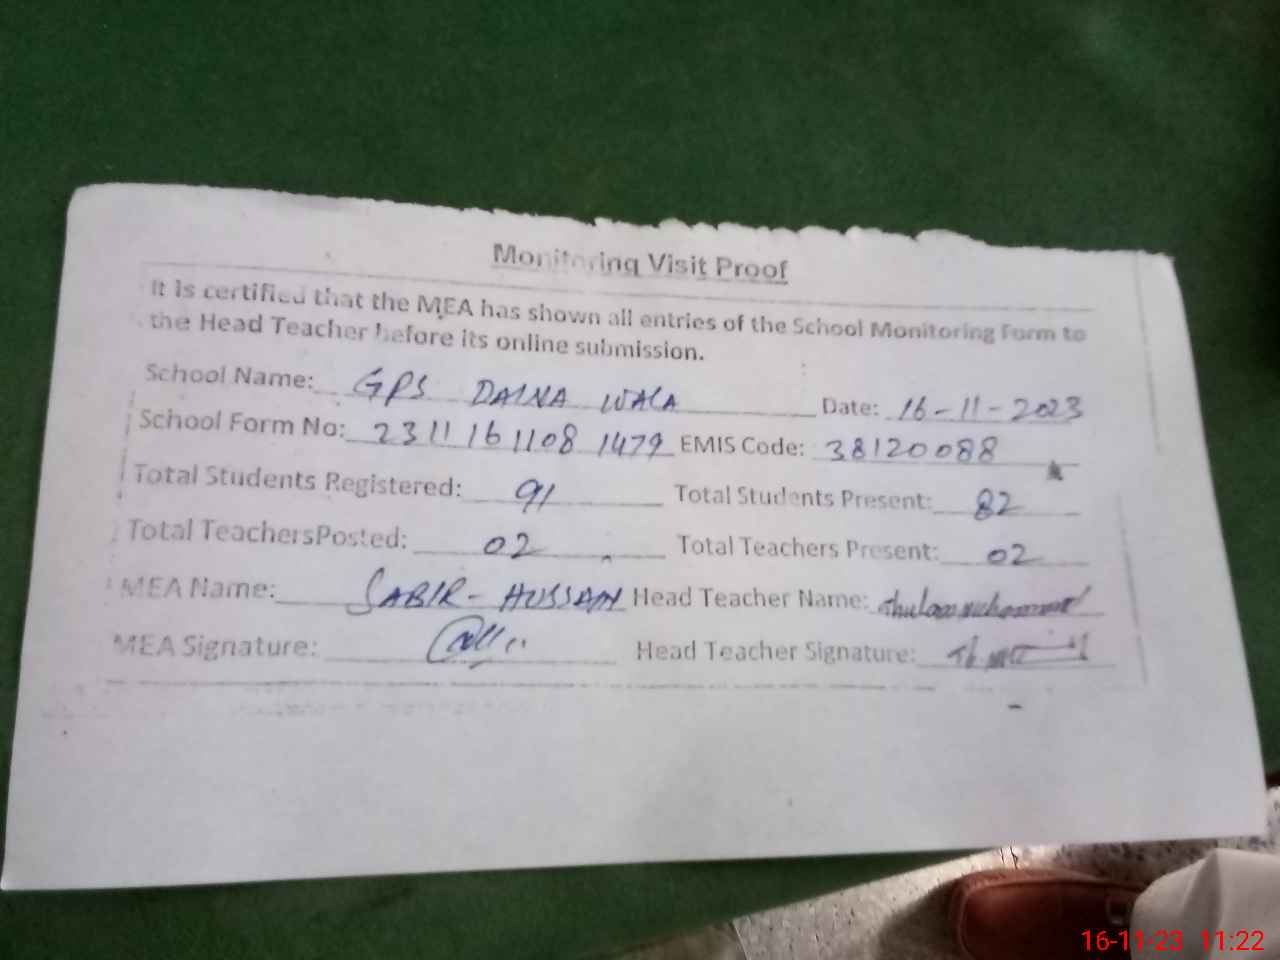 Monitoring Visit Proof
It is certified that the MEA has shown all entries of the School Monitoring Form to
the Head Teacher before its online submission.
School Name: GPS DAINA WALA Date: 16-11-2023
School Form No: 23111611081479 EMIS Code: 38120088
Total Students Registered: 91 Total Students Present: 82
Total TeachersPosted: 02 Total Teachers Present: 02
MEA Name: SABIR-HUSSAIN Head Teacher Name:
MEA Signature: Head Teacher Signature:
16-11-23 11:22